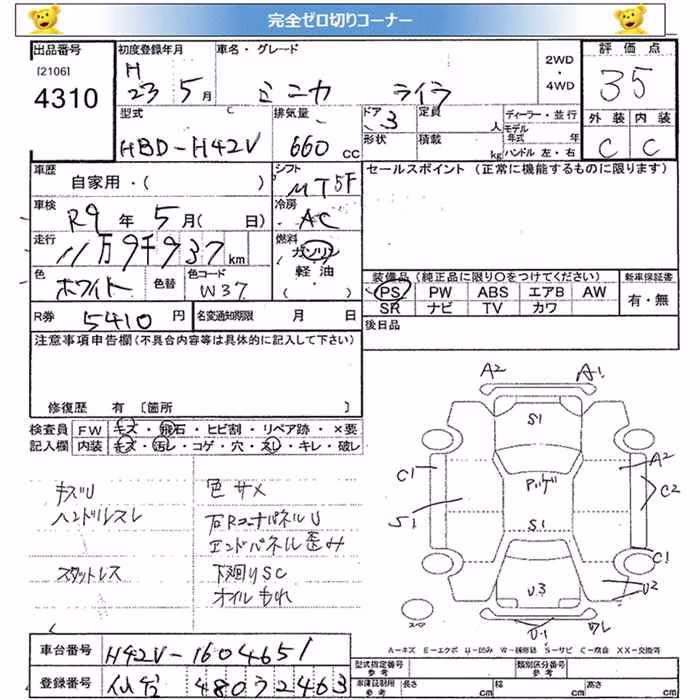 完全ゼロ切りコーナー
出品番号
[2106]
4310
初度登録年月
H
23 5月
車名・グレード
ミニカ ライラ
2WD
・
4WD
評価点
35
型式
C
HBD-H42V
排気量
660 cc
ドア
3
形状
定員
人
積載
kg
ディーラー・並行
モデル
年式 年
ハンドル 左・右
外装 内装
C C
車歴
自家用・( )
シフト
MT5F
セールスポイント (正常に機能するものに限ります)
車検
R9年 5月( 日)
冷房
AC
走行
11万9千937km
燃料
ガソリン
軽油
・( )
色
ホワイト
色替
色コード
W37
装備品 (純正品に限り○をつけてください)
PS PW ABS エアB AW
SR ナビ TV カワ
新車保証書
有・無
R券 5410円
名変通知期限 月 日
後日品
注意事項申告欄(不具合内容等は具体的に記入して下さい)
修復歴 有 〔箇所 〕
検査員
記入欄
FW キズ・飛石・ヒビ割・リペア跡・×要
内装 キズ・汚レ・コゲ・穴・スレ・キレ・破レ
キズU
ハンドルスレ
スタットレス
色サメ
右RコーナパネルU
エンドパネル歪み
下廻りSC
オイルもれ
A2 A1
S1
A2
C1
C2
S1
S1
C1
U3
U2
U1
ワレ
スペア
A-キズ E-エクボ U-凹み W-補修跡 S-サビ C-腐食 XX-交換済
車台番号
H42V-1604651
登録番号
仙台 480 う 2463
型式指定番号
類別区分番号
車庫証明用
参考
長さ cm
幅 cm
高さ cm